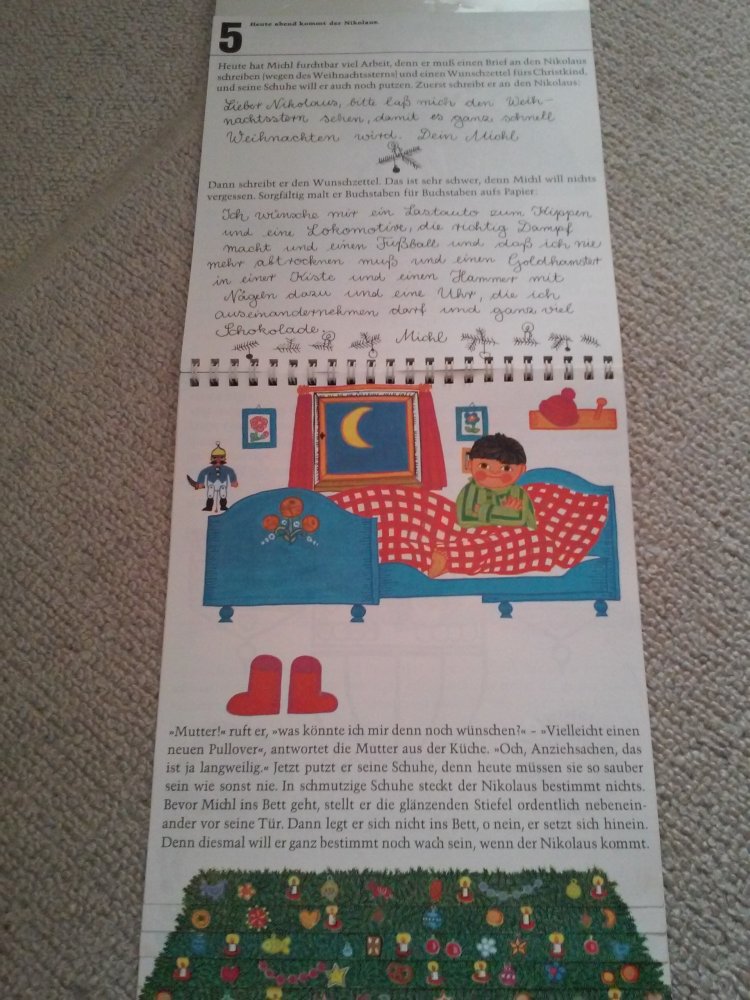 5
Heute abend kommt der Nikolaus.
Heute hat Michl furchtbar viel Arbeit, denn er muß einen Brief an den Nikolaus
schreiben (wegen des Weihnachtssterns) und einen Wunschzettel fürs Christkind,
und seine Schuhe will er auch noch putzen. Zuerst schreibt er an den Nikolaus:
Lieber Nikolaus, bitte laß mich den Weih-
nachtsstern sehen, damit es ganz schnell
Weihnachten wird. Dein Michl
Dann schreibt er den Wunschzettel. Das ist sehr schwer, denn Michl will nichts
vergessen. Sorgfältig malt er Buchstaben für Buchstaben aufs Papier:
Ich wünsche mir ein Lastauto zum Kippen
und eine Lokomotive, die richtig Dampf
macht und einen Fußball und daß ich nie
mehr abtrocknen muß und einen Goldhamster
in einer Kiste und einen Hammer mit
Nägeln dazu und eine Uhr, die ich
auseinandernehmen darf und ganz viel
Schokolade. Michl
»Mutter!« ruft er, »was könnte ich mir denn noch wünschen?« – »Vielleicht einen
neuen Pullover«, antwortet die Mutter aus der Küche. »Och, Anziehsachen, das
ist ja langweilig.« Jetzt putzt er seine Schuhe, denn heute müssen sie so sauber
sein wie sonst nie. In schmutzige Schuhe steckt der Nikolaus bestimmt nichts.
Bevor Michl ins Bett geht, stellt er die glänzenden Stiefel ordentlich nebenein-
ander vor seine Tür. Dann legt er sich nicht ins Bett, o nein, er setzt sich hinein.
Denn diesmal will er ganz bestimmt noch wach sein, wenn der Nikolaus kommt.